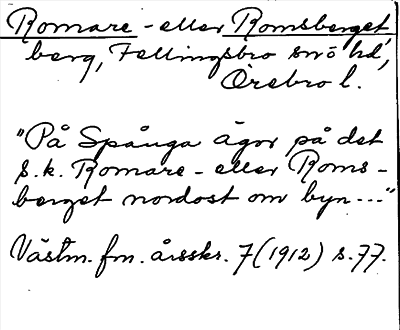 Romare- eller Romsberget
berg, Fellingsbro snö hd,
Örebro l.
"På Spånga ägor på det
s.k. Romare- eller Roms-
berget nordost om byn..."
Västm. fm. årsskr. 7 (1912) s. 77.